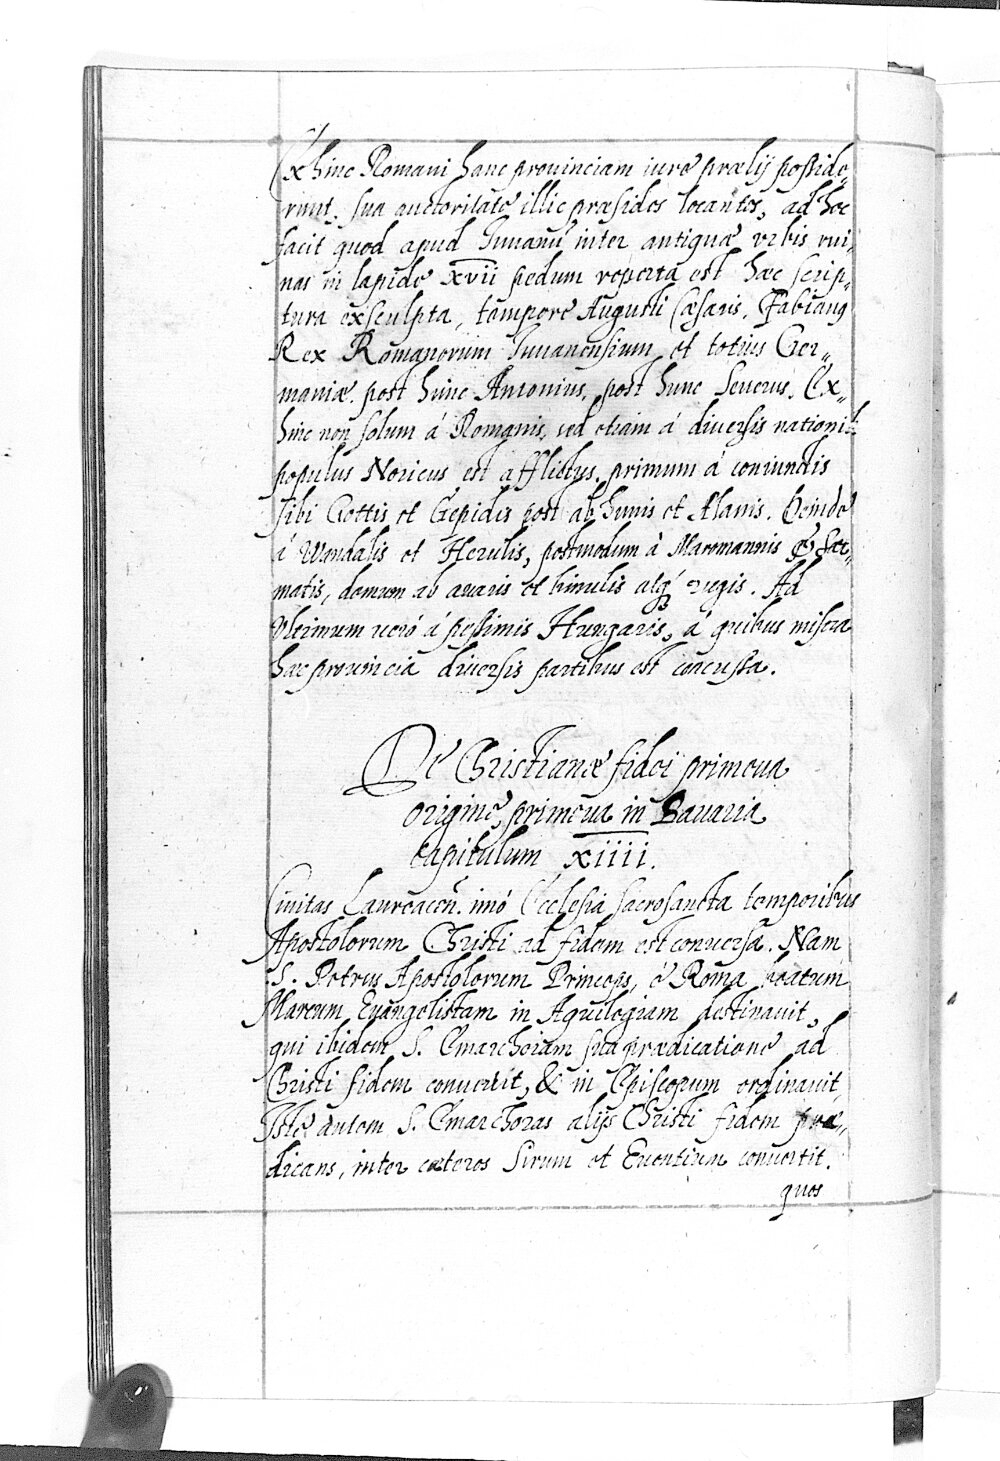 Ex hinc Romani hanc prouinciam iure prælij posside„
runt, sua auctoritate illic præsides locantes, ad hoc
facit quod apud Iuuanū inter antiquæ vrbis rui„
nas in lapide xvii pedum reperta est hæc scrip„
tura exsculpta, tempore Augusti Cæsaris, Fabianꝯ
Rex Romanorum Iuuanensium et totius Ger„
maniæ. post hunc Antonius, post hunc Seuerus. Ex„
hinc non solum á Romanis, sed etiam á diuersis nationib
populus Noricus est afflictus. primum á coniunctis
sibi Gottis et Gepidis post ab hunis et Alanis. Deinde
á Wandalis et Herulis, postmodum à Maromannis & Sar„
matis, demum ab auaris et himulis atq́ȝ regis. Ad
Vltimum ueró á pessimis Hungaris, á quibus misera
hæc prouincia diuersis partibus est concussa.
De Christianæ fidei primeua
origine, primeua in Bauaria
capitulum xiiii.
Ciuitas Laureacen̄. imó Ecclesia sacrosancta temporibus
Apostolorum Christi ad fidem est conuersa. Nam
S. Petrus Apostolorum Princeps, é Roma beatum
Marcum Euangelistam in Aquilegiam destinauit,
qui ibidem S. Emarchoram sua prædicatione ad
Christi fidem conuertit, & in Episcopum ordinauit,
Iste autem S. Emarchoras alijs Christi fidem præ„
dicans, inter cæteros Sirum et Euentium conuertit.
quos